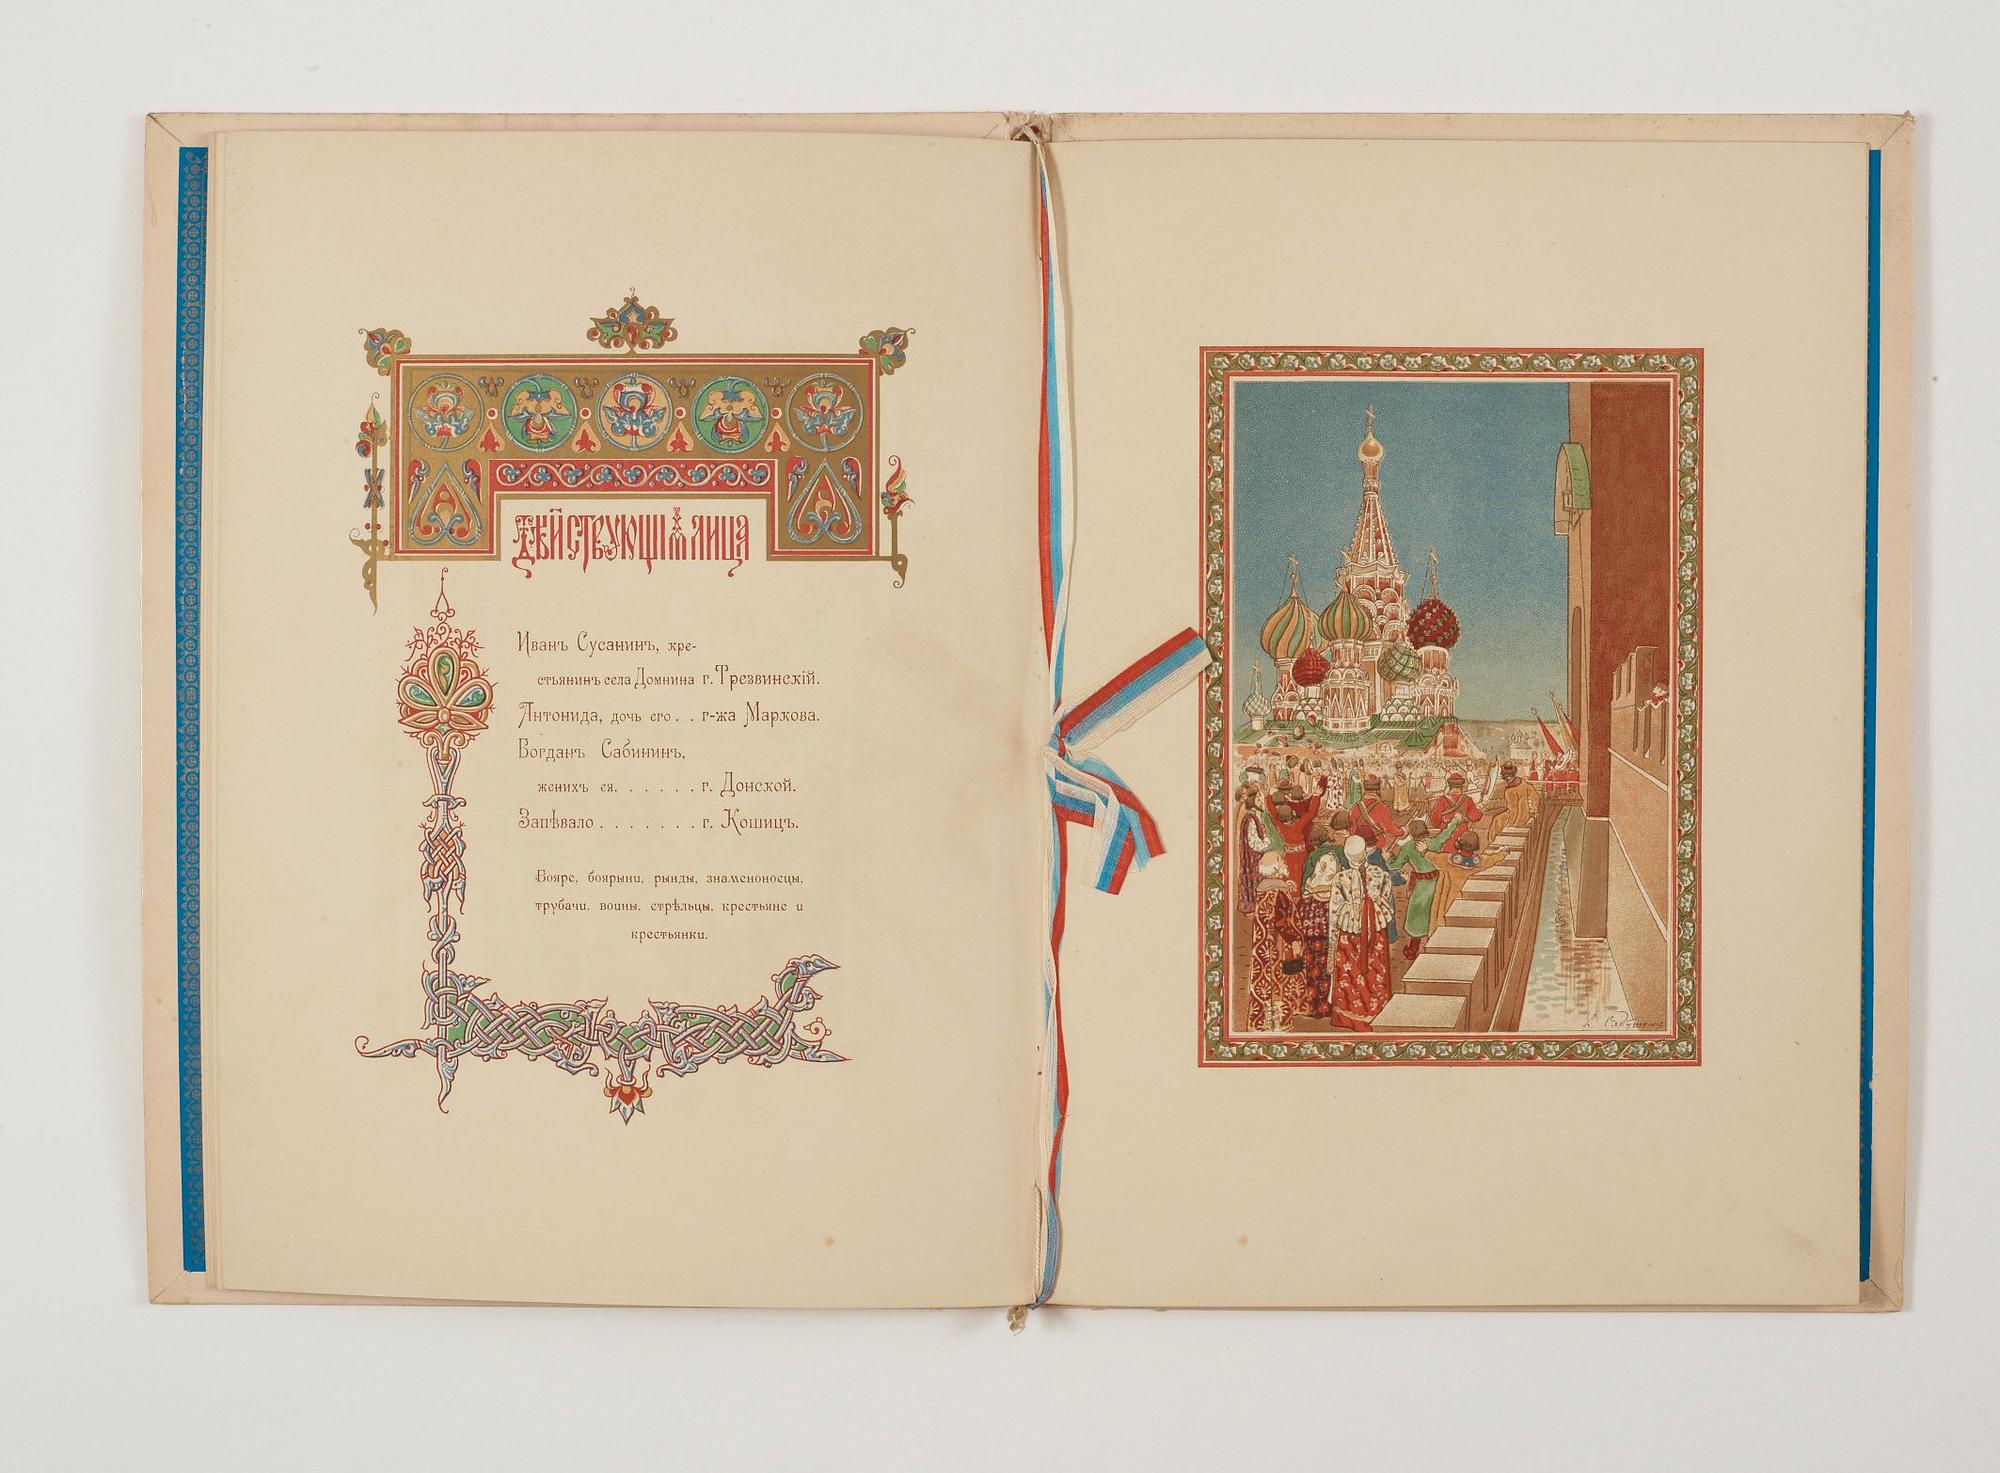 Дѣйствующія лица
Иванъ Сусанинъ, кре-
стьянинъ села Домнина г. Трезвинскій.
Антонида, дочь его . . г-жа Маркова.
Богданъ Сабининъ,
женихъ ея. . . . . . . г. Донской.
Запѣвало . . . . . . . г. Кошицъ.
Бояре, боярыни, рынды, знаменоносцы,
трубачи, воины, стрѣльцы, крестьяне и
крестьянки.